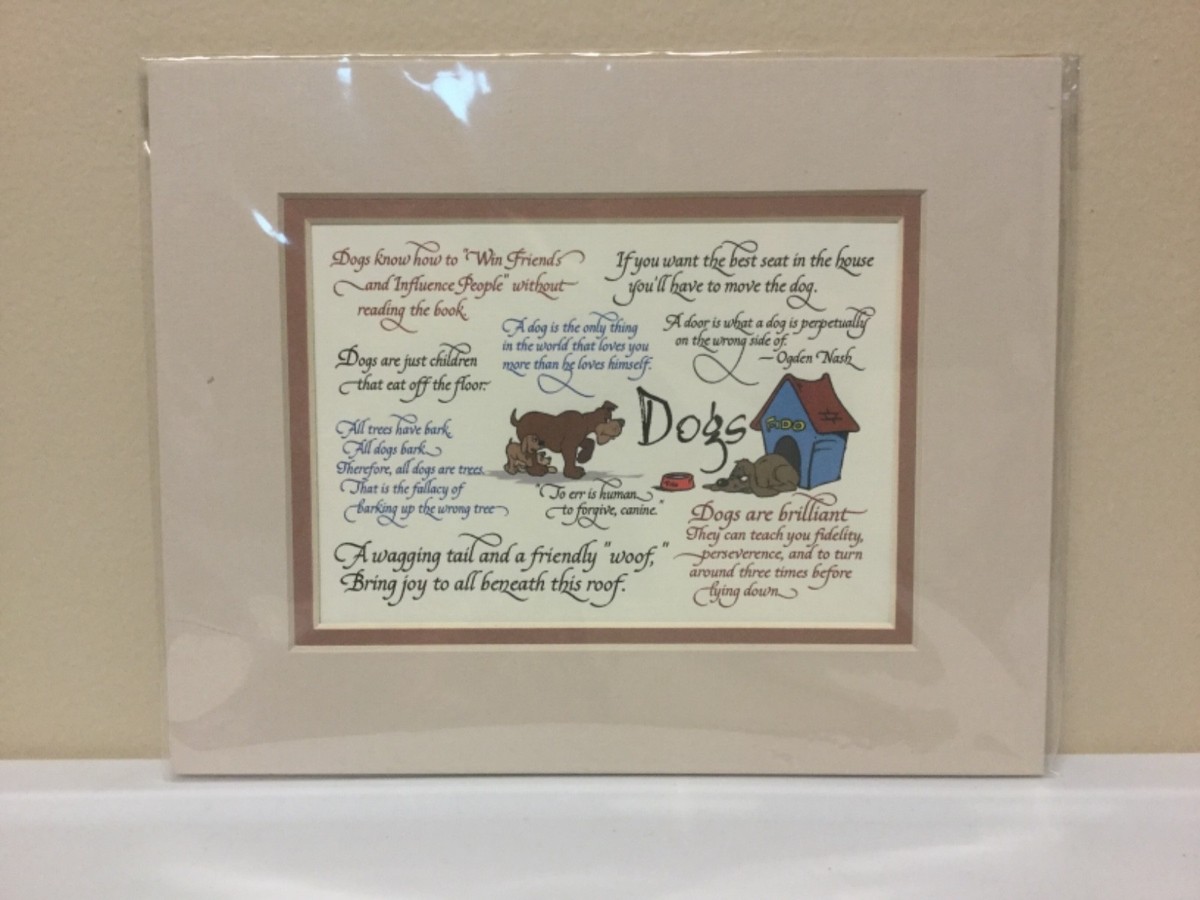 Dogs know how to "Win Friends
and Influence People" without
reading the book.
If you want the best seat in the house
you'll have to move the dog.
A dog is the only thing
in the world that loves you
more than he loves himself.
A door is what a dog is perpetually
on the wrong side of.
—Ogden Nash
Dogs are just children
that eat off the floor.
All trees have bark.
All dogs bark.
Therefore, all dogs are trees.
That is the fallacy of
barking up the wrong tree
Dogs
FIDO
"To err is human,
to forgive, canine."
Dogs are brilliant
They can teach you fidelity,
perseverence, and to turn
around three times before
lying down.
A wagging tail and a friendly "woof,"
Bring joy to all beneath this roof.